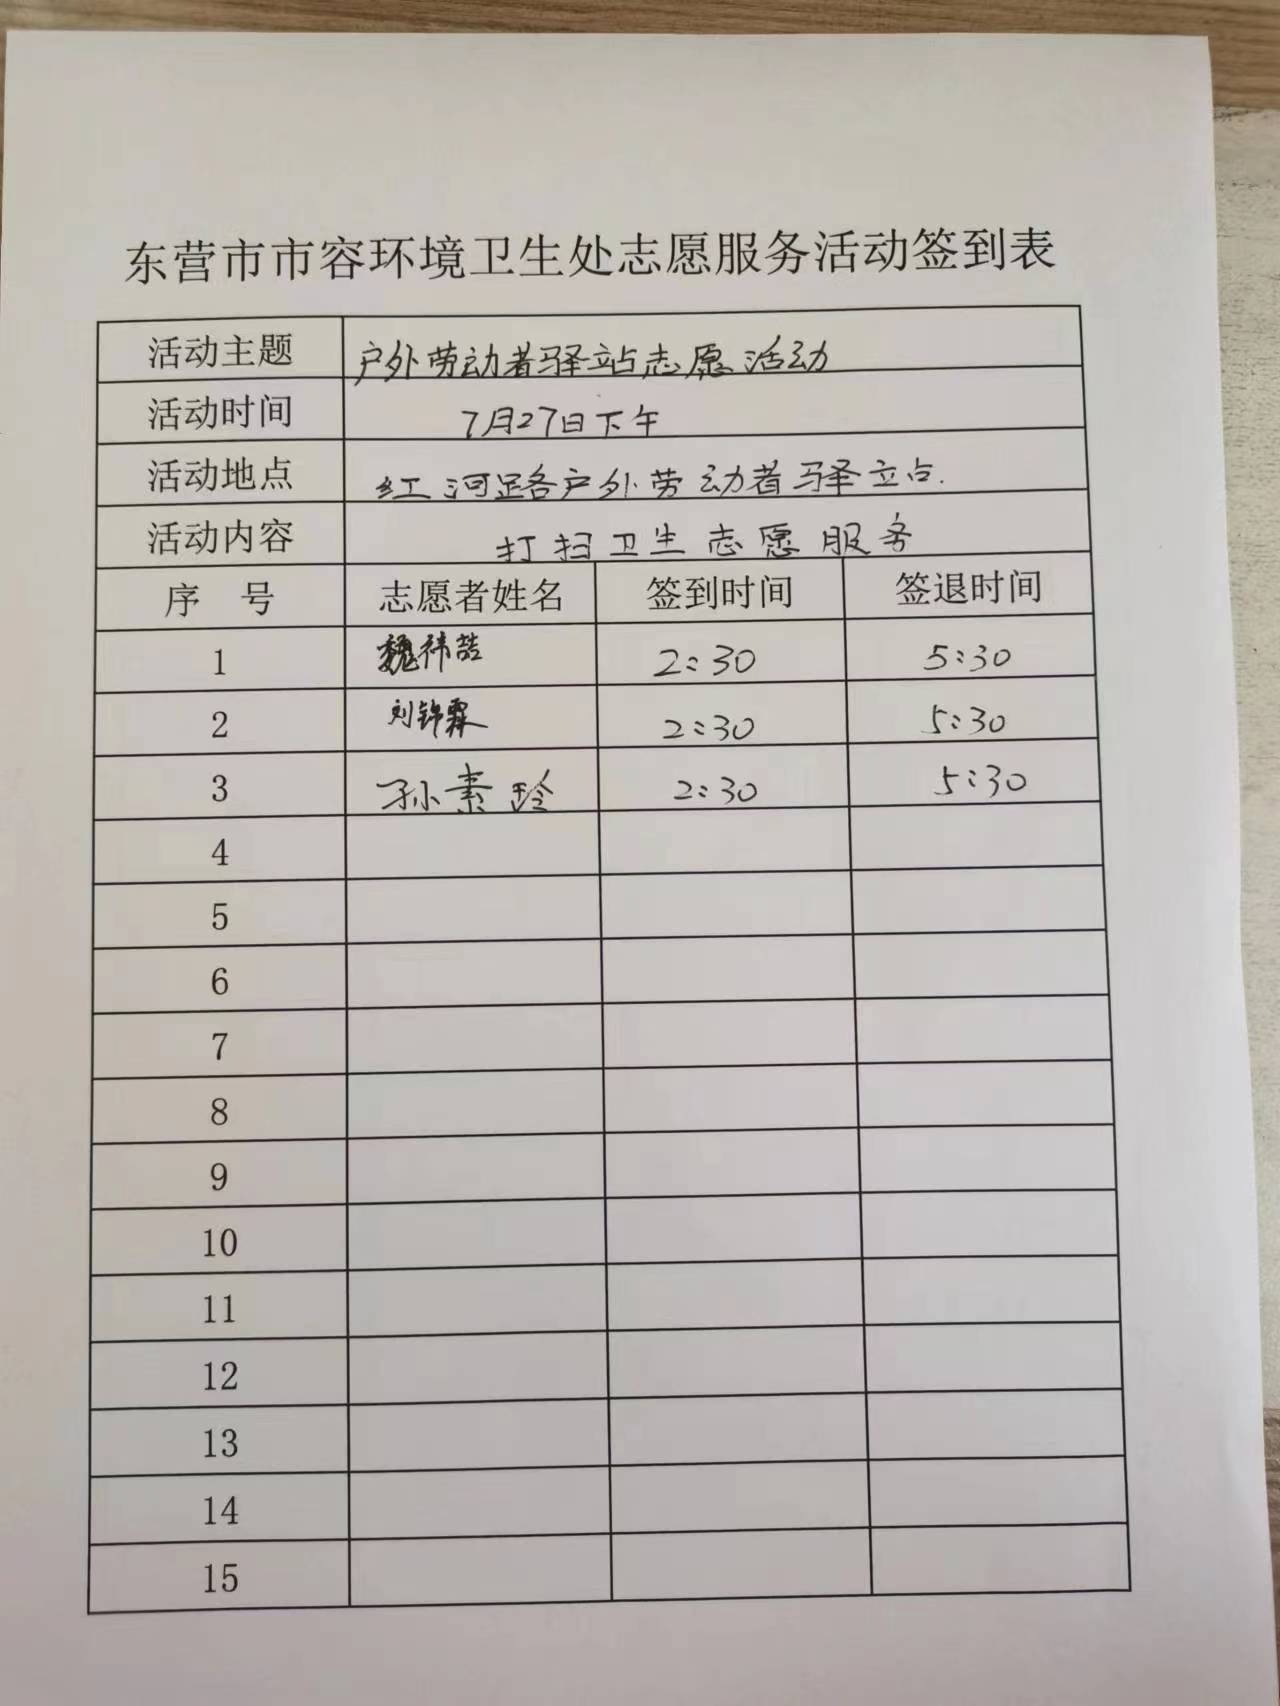 东营市市容环境卫生处志愿服务活动签到表
活动主题 户外劳动者驿站志愿活动
活动时间 7月27日下午
活动地点 红河路户外劳动者驿立点.
活动内容 打扫卫生志愿服务
序 号 志愿者姓名 签到时间 签退时间
1 魏祎喆 2:30 5:30
2 刘锦霖 2:30 5:30
3 孙素玲 2:30 5:30
4
5
6
7
8
9
10
11
12
13
14
15